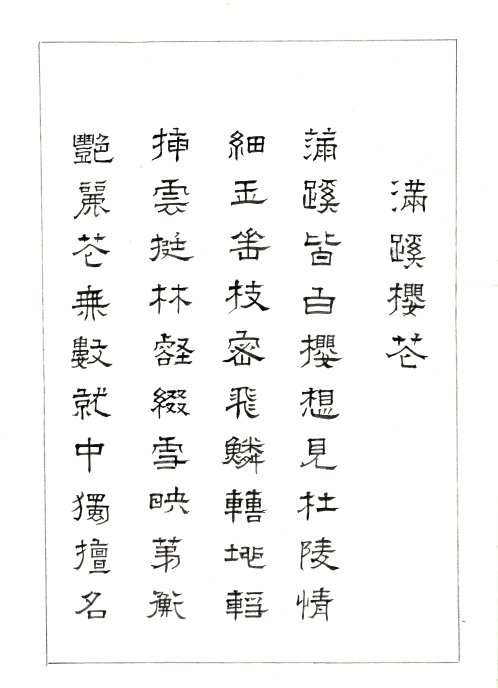 滿蹊櫻花
滿蹊皆白櫻想見杜陵情
細玉枝密飛鱗地輕
插雲挺林壑綴雪映茅衡
艷麗花無數就中獨擅名